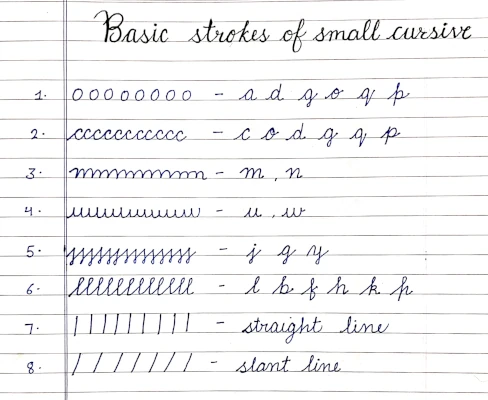 Basic strokes of small cursive
1. 0 0 0 0 0 0 0 0 - a d g o q p
2. ccccccccccc - c o d g q p
3. mmmmmmm - m , n
4. uuuuuuuuu - u , w
5. jjjjjjjjjjjjj - j g y
6. llllllllllll - l b f h k p
7. | | | | | | | | | - straight line
8. / / / / / / / - slant line